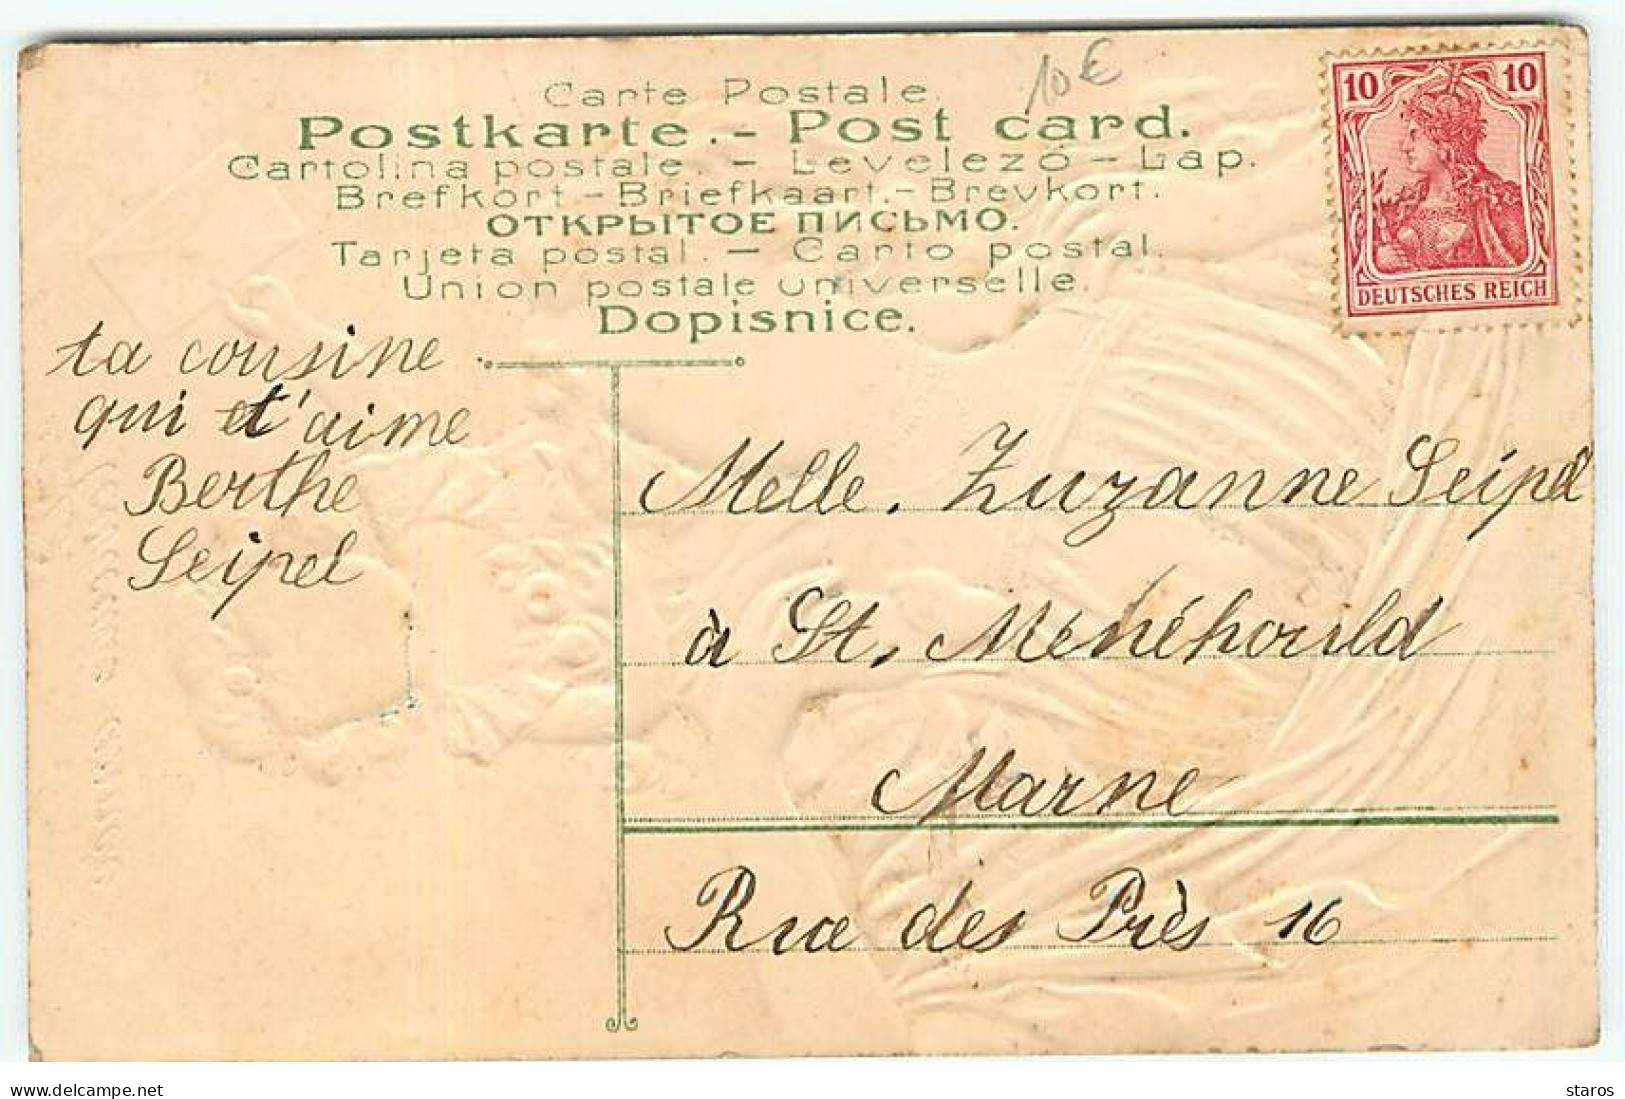 10 €
10 10
DEUTSCHES REICH
Carte Postale.
Postkarte. - Post card.
Cartolina postale. - Levelezó - Lap.
Brefkort - Briefkaart. - Brevkort.
ОТКРЫТОЕ ПИСЬМО.
Tarjeta postal. - Carto postal.
Union postale universelle.
Dopisnice.
ta cousine
qui t'aime
Berthe
Seipel
Melle. Zuzanne Seipel
à St. Ménéhould
Marne
Rue des Près 16
www.delcampe.net
staros